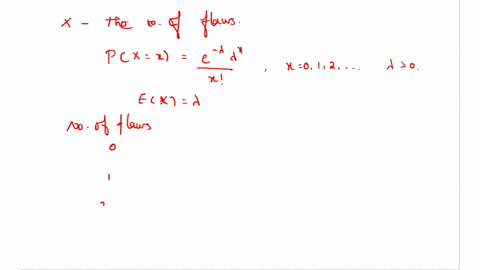 X - the no. of flaws.
P(X = x) = e^{-λ} λ^x / x! , x = 0, 1, 2, .... λ > 0.
E(X) = λ
No. of flaws
0
1
2